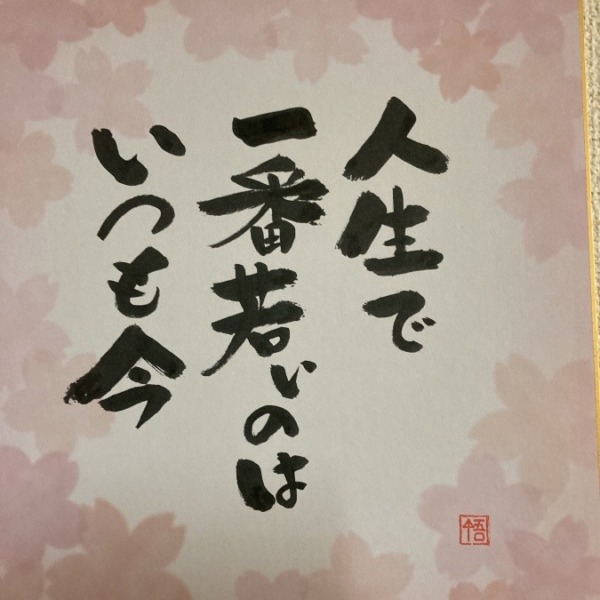 人生で
一番若いのは
いつも今
悟